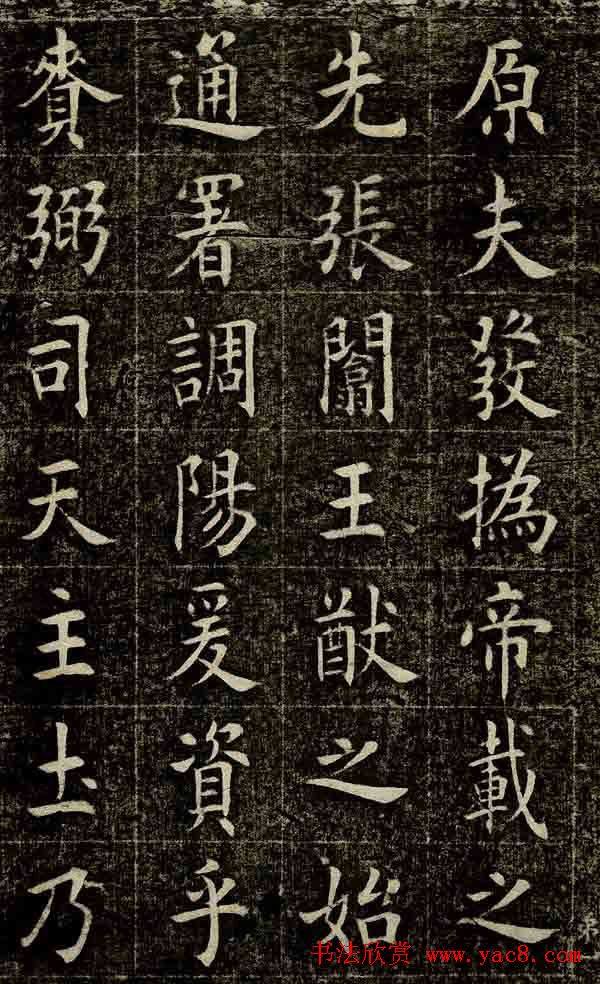 原夫發撝帝載之
先張闡王猷之始
通署調陽爰資乎
賚弼司天主土乃
书法欣赏 www.yac8.com